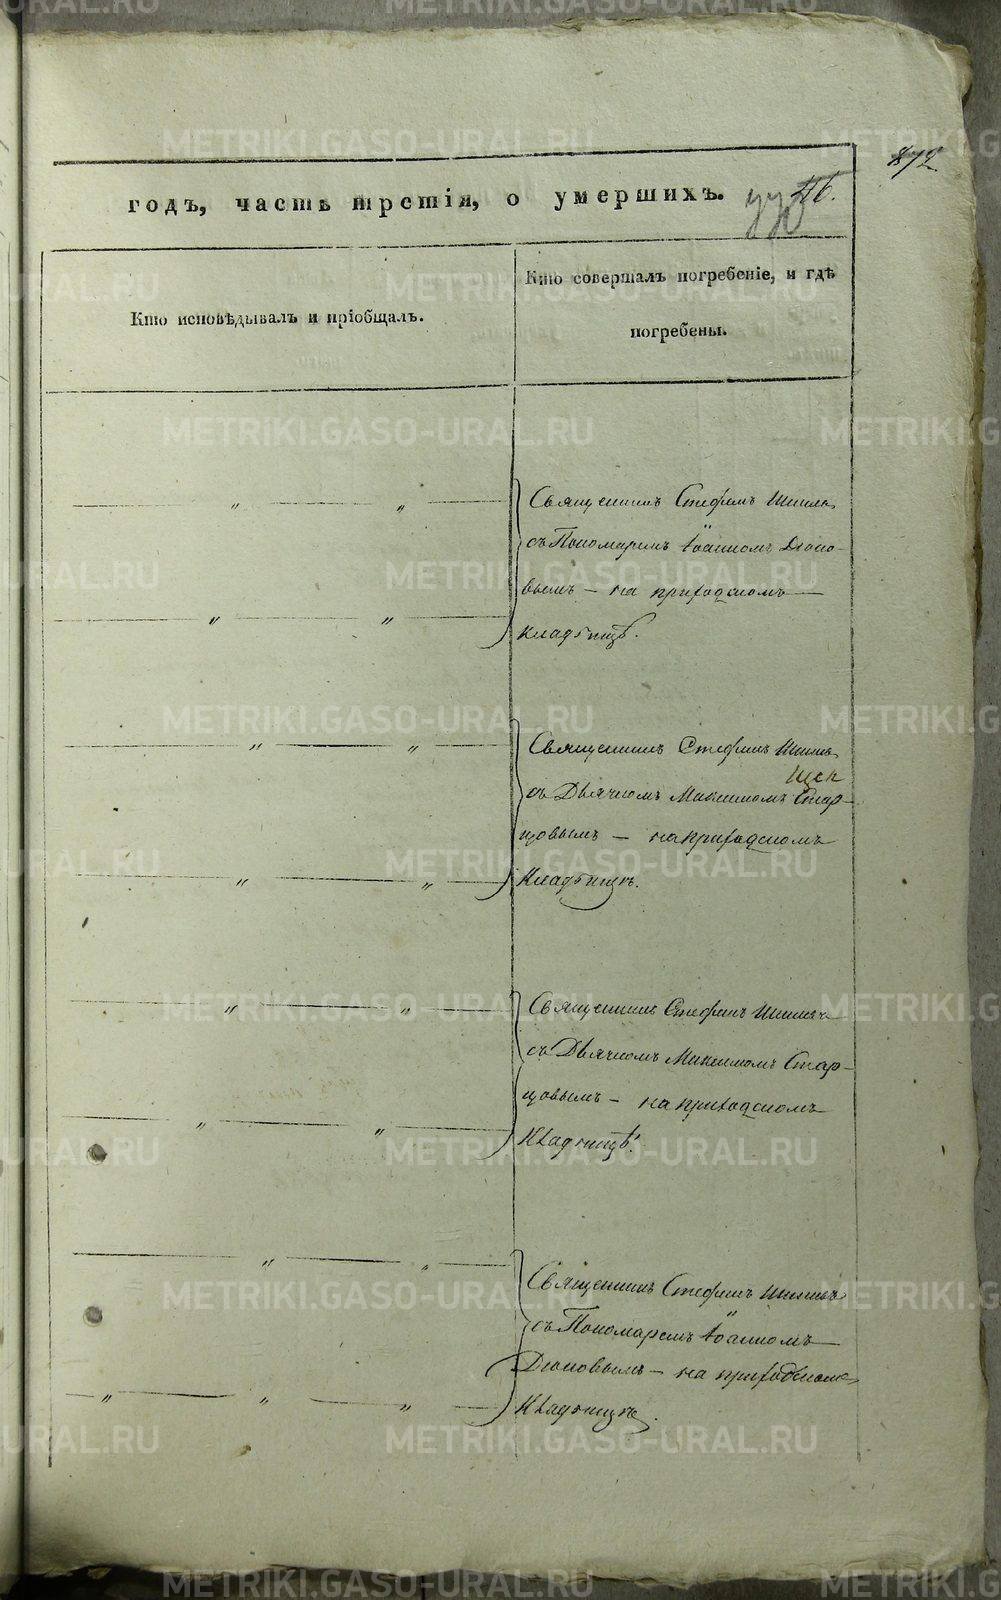 872.
годъ, часть третія, о умершихъ.
46.
Кто исповѣдывалъ и пріобщалъ.
Кто совершалъ погребеніе, и гдѣ
погребены.
Священникъ Стефанъ
съ Пономаремъ Іоанномъ Дюко-
вымъ – на приходскомъ
кладбищѣ.
Священникъ Стефанъ
съ Дьячкомъ Максимомъ Стар-
цовымъ – на приходскомъ
Кладбищѣ.
Священникъ Стефанъ
съ Дьячкомъ Максимомъ Стар-
цовымъ – на приходскомъ
Кладбищѣ.
Священникъ Стефанъ
съ Пономаремъ Іоанномъ
Дюковымъ – на приходскомъ
Кладбищѣ.
METRIKI.GASO-URAL.RU